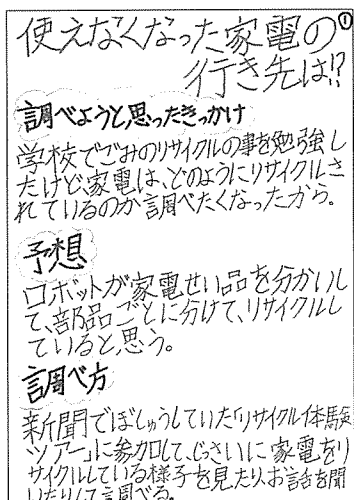 ①
使えなくなった家電の
行き先は!?
調べようと思ったきっかけ
学校でごみのリサイクルの事を勉強し
たけど、家電は、どのようにリサイクルさ
れているのか調べたくなったから。
予想
ロボットが家電せい品を分かいし
て、部品ごとに分けて、リサイクルし
ていると思う。
調べ方
新聞でぼしゅうしていた「リサイクル体験
ツアー」に参加して、じっさいに家電をリ
サイクルしている様子を見たり、お話を聞
いたりして調べる。